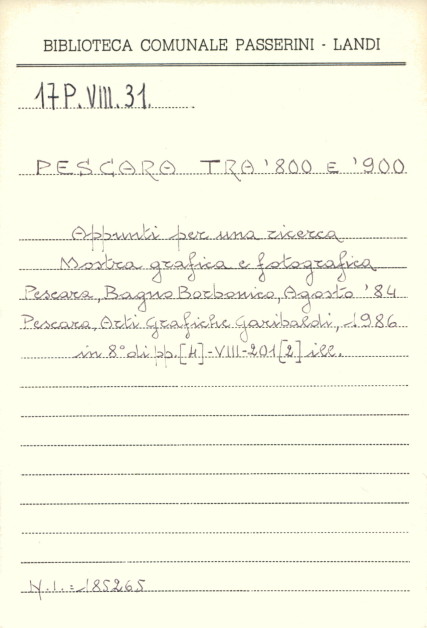 BIBLIOTECA COMUNALE PASSERINI - LANDI
17P.VIII.31.
PESCARA TRA '800 E '900
Appunti per una ricerca
Mostra grafica e fotografica
Pescara, Bagno Borbonico, Agosto '84
Pescara, Arti Grafiche Garibaldi, 1986
in 8° di pp. [4]-VIII-201[2] ill.
N.I.: 185265